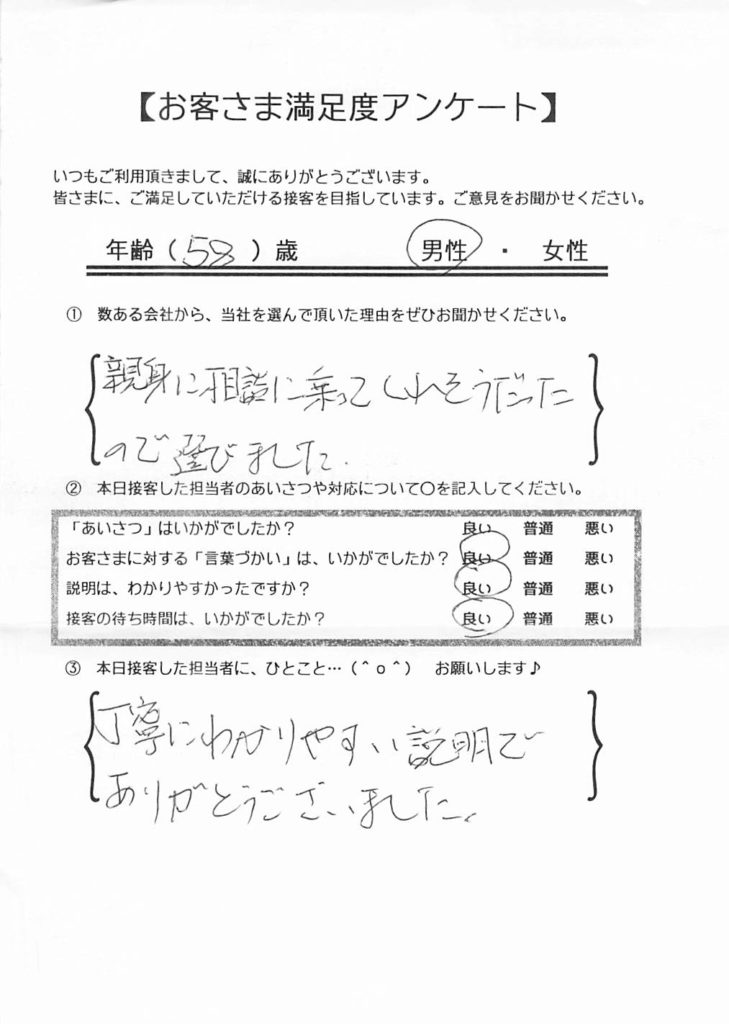 【お客さま満足度アンケート】
いつもご利用頂きまして、誠にありがとうございます。
皆さまに、ご満足していただける接客を目指しています。ご意見をお聞かせください。
年齢（58）歳　男性 ・ 女性
① 数ある会社から、当社を選んで頂いた理由をぜひお聞かせください。
親身に相談に乗ってくれそうだった
ので選びました.
② 本日接客した担当者のあいさつや対応について〇を記入してください。
「あいさつ」はいかがでしたか？　良い　普通　悪い
お客さまに対する「言葉づかい」は、いかがでしたか？　良い　普通　悪い
説明は、わかりやすかったですか？　良い　普通　悪い
接客の待ち時間は、いかがでしたか？　良い　普通　悪い
③ 本日接客した担当者に、ひとこと…（＾ｏ＾）　お願いします♪
丁寧にわかりやすい説明で
ありがとうございました。